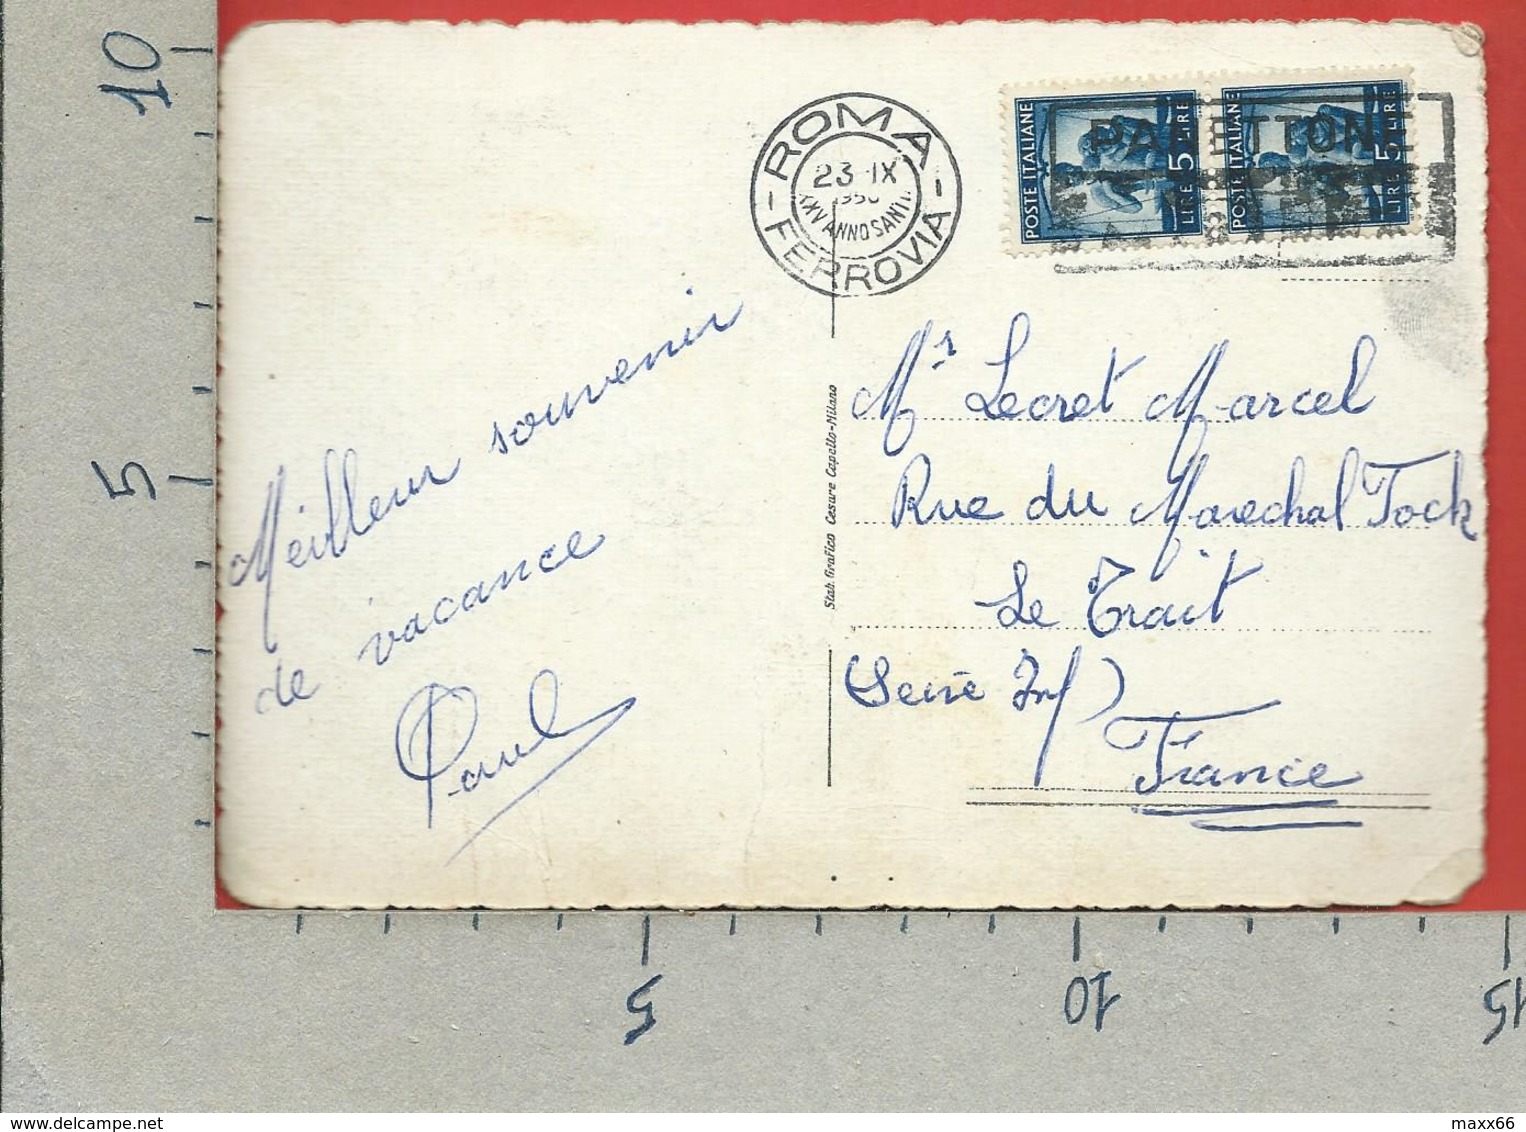 10
5
ROMA
FERROVIA
23 IX
1950
XXV ANNO SANTO
POSTE ITALIANE
LIRE 5 LIRE
POSTE ITALIANE
LIRE 5 LIRE
PANETTONE
Meilleur souvenir
de vacance
Paul
Stab. Grafico Cesare Capello-Milano
Mr Lecret Marcel
Rue du Marechal Fock
Le Trait
(Seine Inf)
France
5
10
15
delcampe.net
maxx66